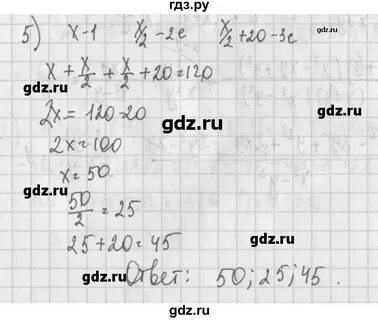 гдз.ру
5) x-1 x/2 -2е x/2 +20 -3е
x + x/2 + x/2 + 20 = 120
2x = 120-20
2x = 100
x = 50
50/2 = 25
25+20 = 45
Ответ: 50; 25; 45.
gdz.ru
gdz.ru
gdz.ru
gdz.ru
gdz.ru
gdz.ru
gdz.ru
gdz.ru
gdz.ru